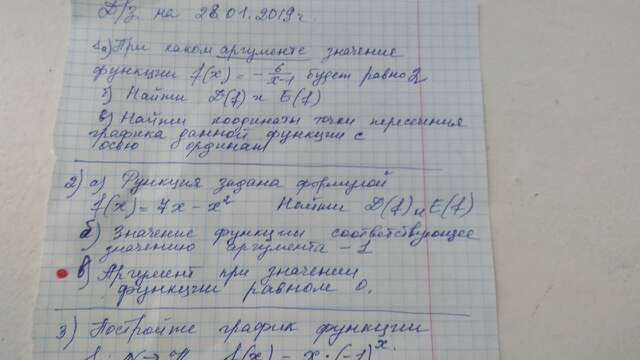 Д/з. на 28.01.2019г.
1.а) При каком аргументе значение
функции f(x) = - 6/x-1 будет равно 2
б) Найти D(f) и E(f)
в) Найти координаты точки пересечения
графика данной функции с
осью ординат
2) а) Функция задана формулой
f(x) = 7x - x² Найти D(f) и E(f)
б) Значение функции соответствующее
значению аргумента -1
в) Аргумент при значении
функции равном 0.
3) Постройте график функции
f(x) = x·(-1)ˣ.